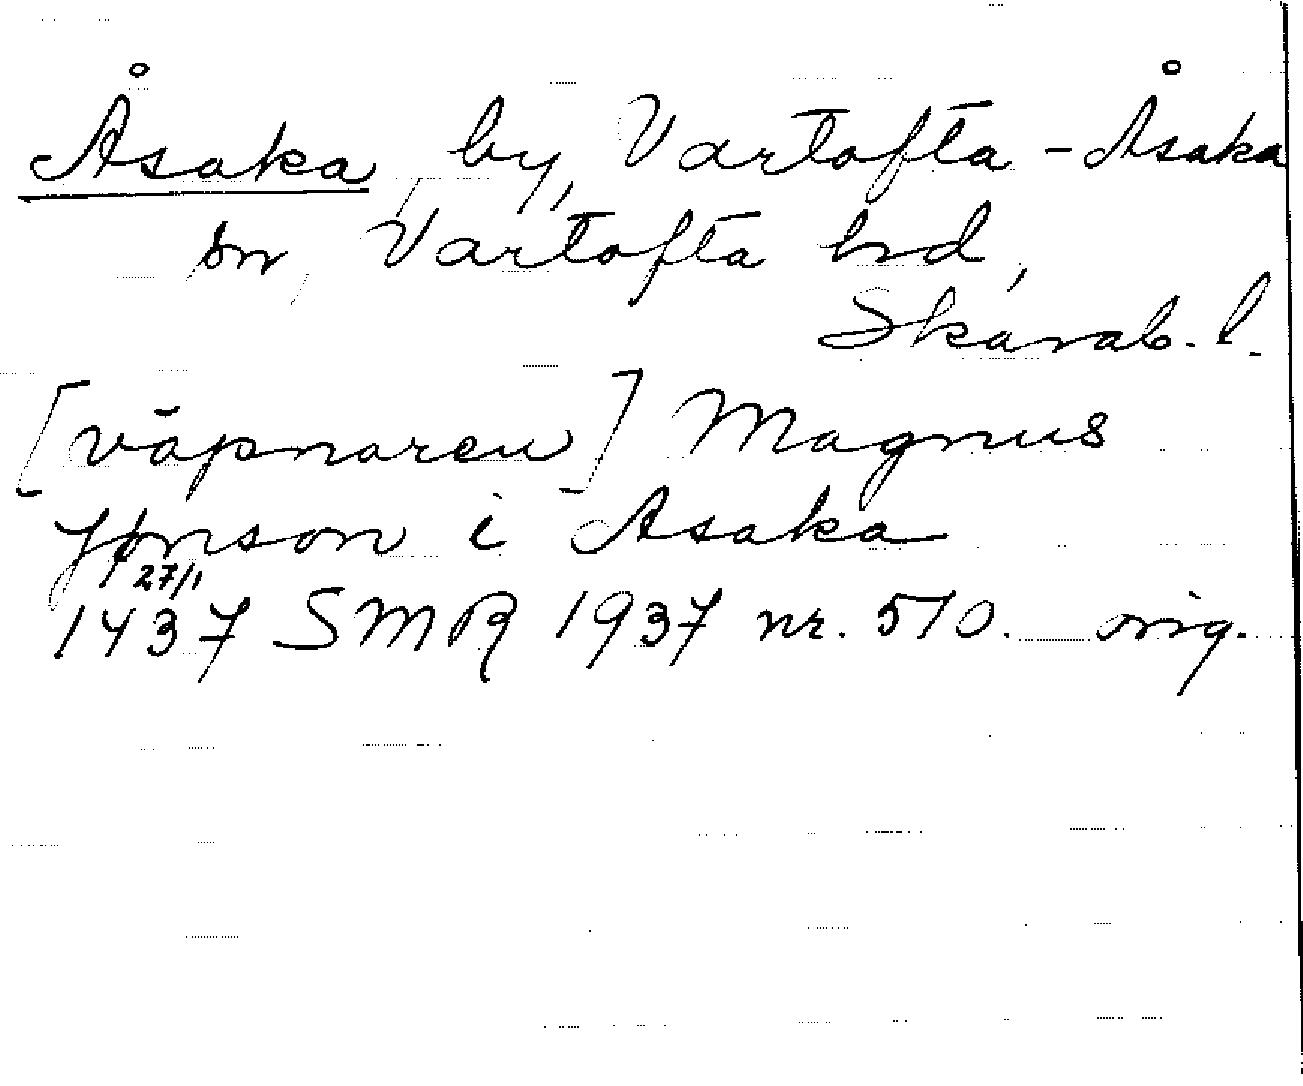 Åsaka by, Vartofta-Åsaka
sn, Vartofta hrd,
Skarab. l.
[väpnaren] Magnus
Jønson i Asaka
27/1
1437 SMR 1937 nr. 510. orig.